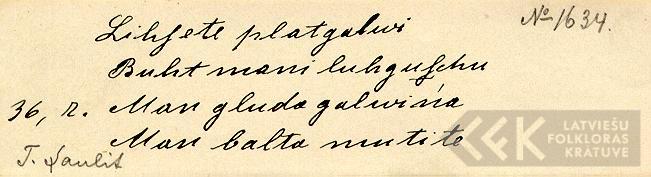 № 1634.
Lihsete platgalwi
Buht mani luhguschu
36, r. Man gluda galwińa
Man balta mutite
T. Saulit
LATVIEŠU
FOLKLORAS
KRATUVE